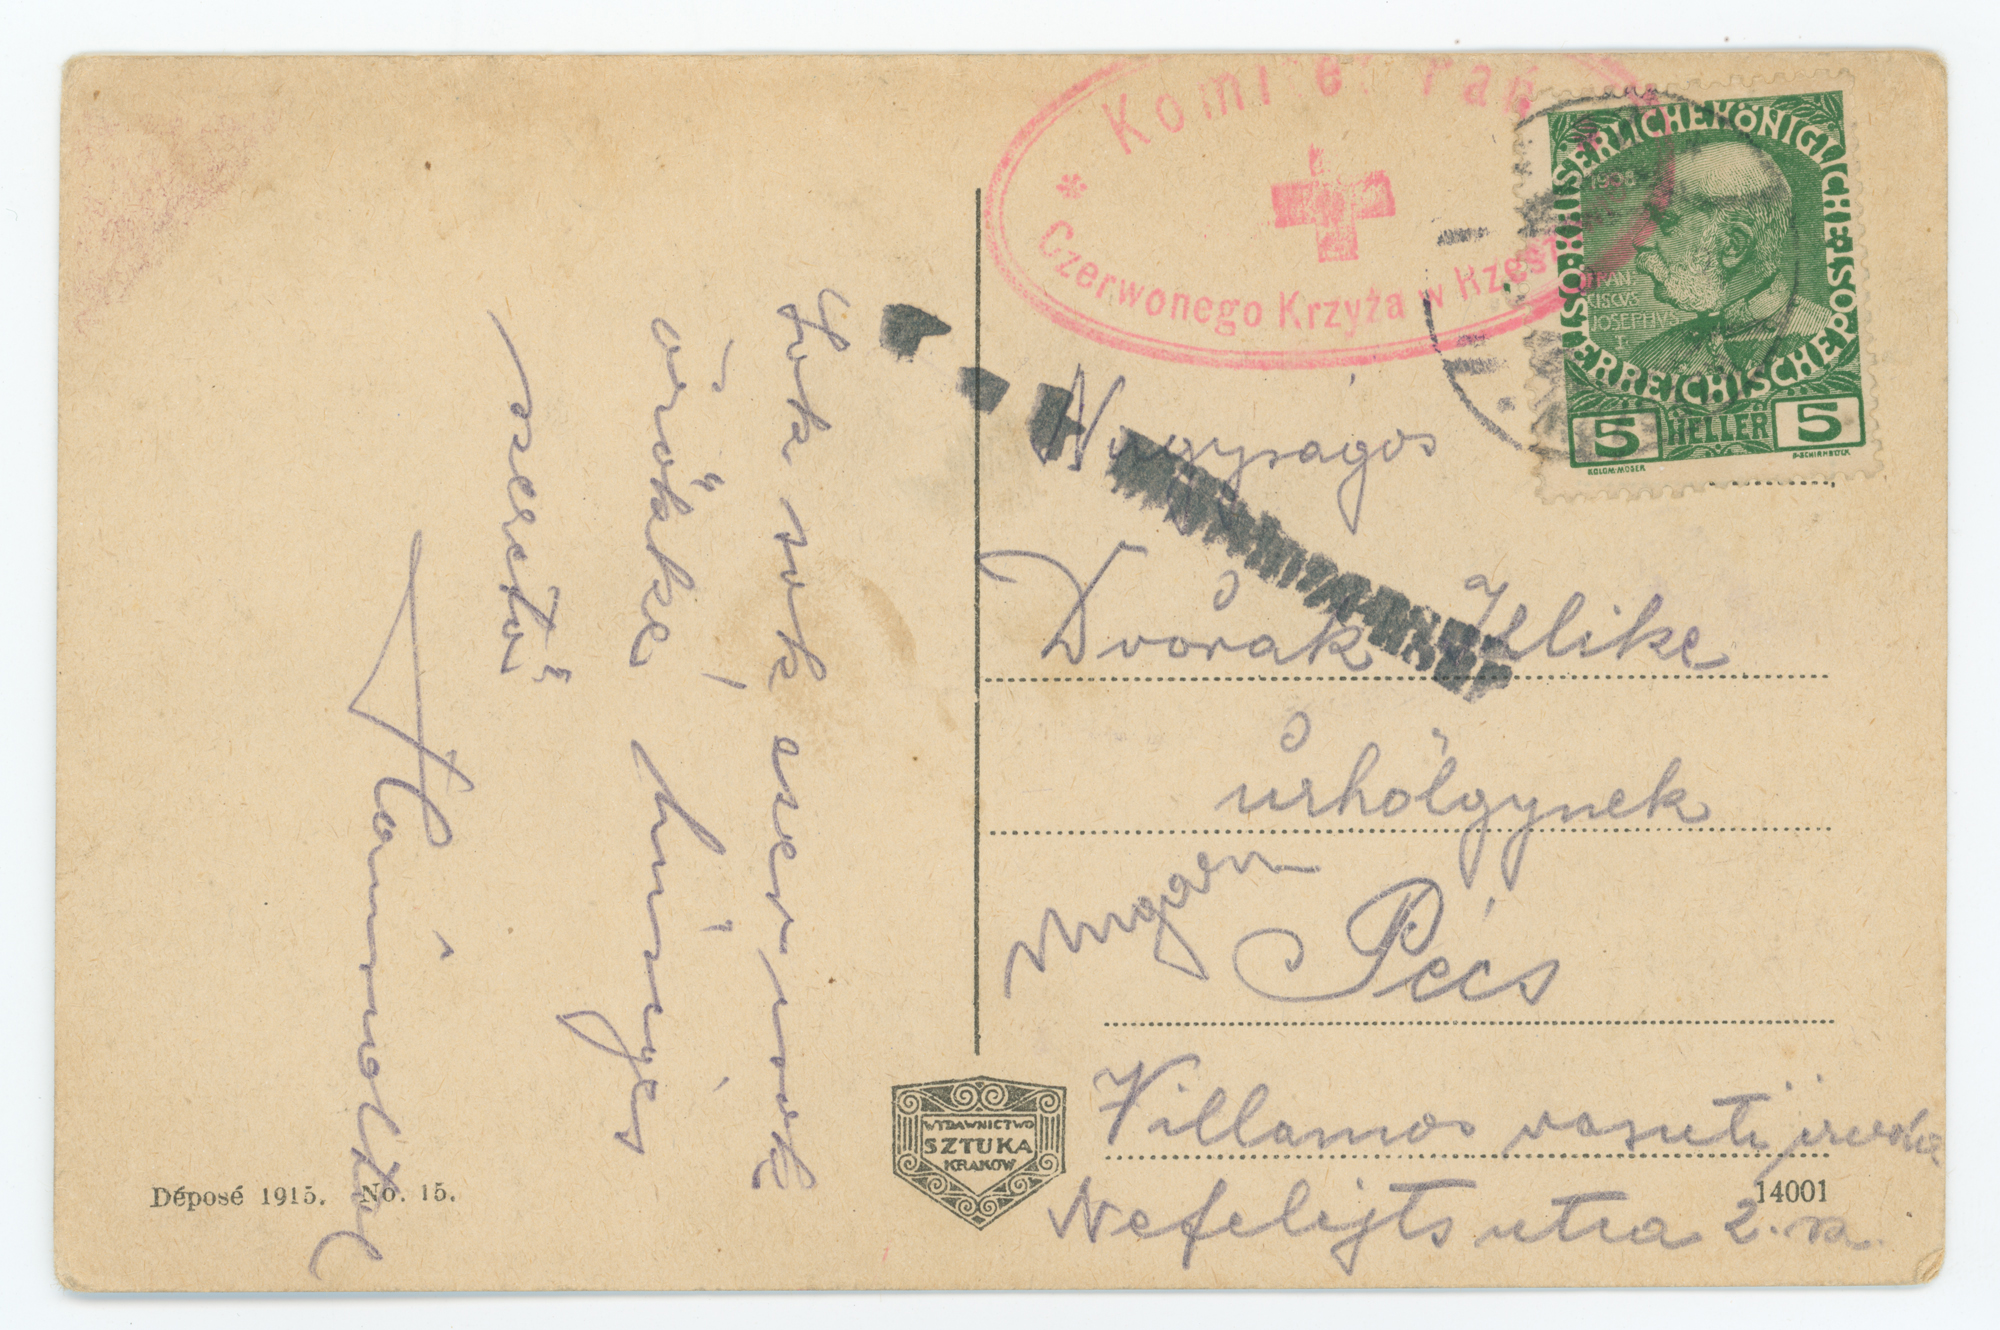 Komitet Pań
Czerwonego Krzyża w Rzesz
KAISERLICHE KÖNIGLICHE
ÖSTERREICHISCHE POST
1908
FRAN
CISCVS
JOSEPHVS
I
5 HELLER 5
KOLOM·MOSER
F·SCHIRNBÖCK
Nagyságos
Dvořák Ilike
úrhölgynek
Ungarn
Pécs
Villamos vasuti iroda
Nefelejts utca 2. sz.
Sok sok ezer csók
örökké hűséges
szerető
WYDAWNICTWO
SZTUKA
KRAKÓW
Déposé 1915. No. 15.
14001